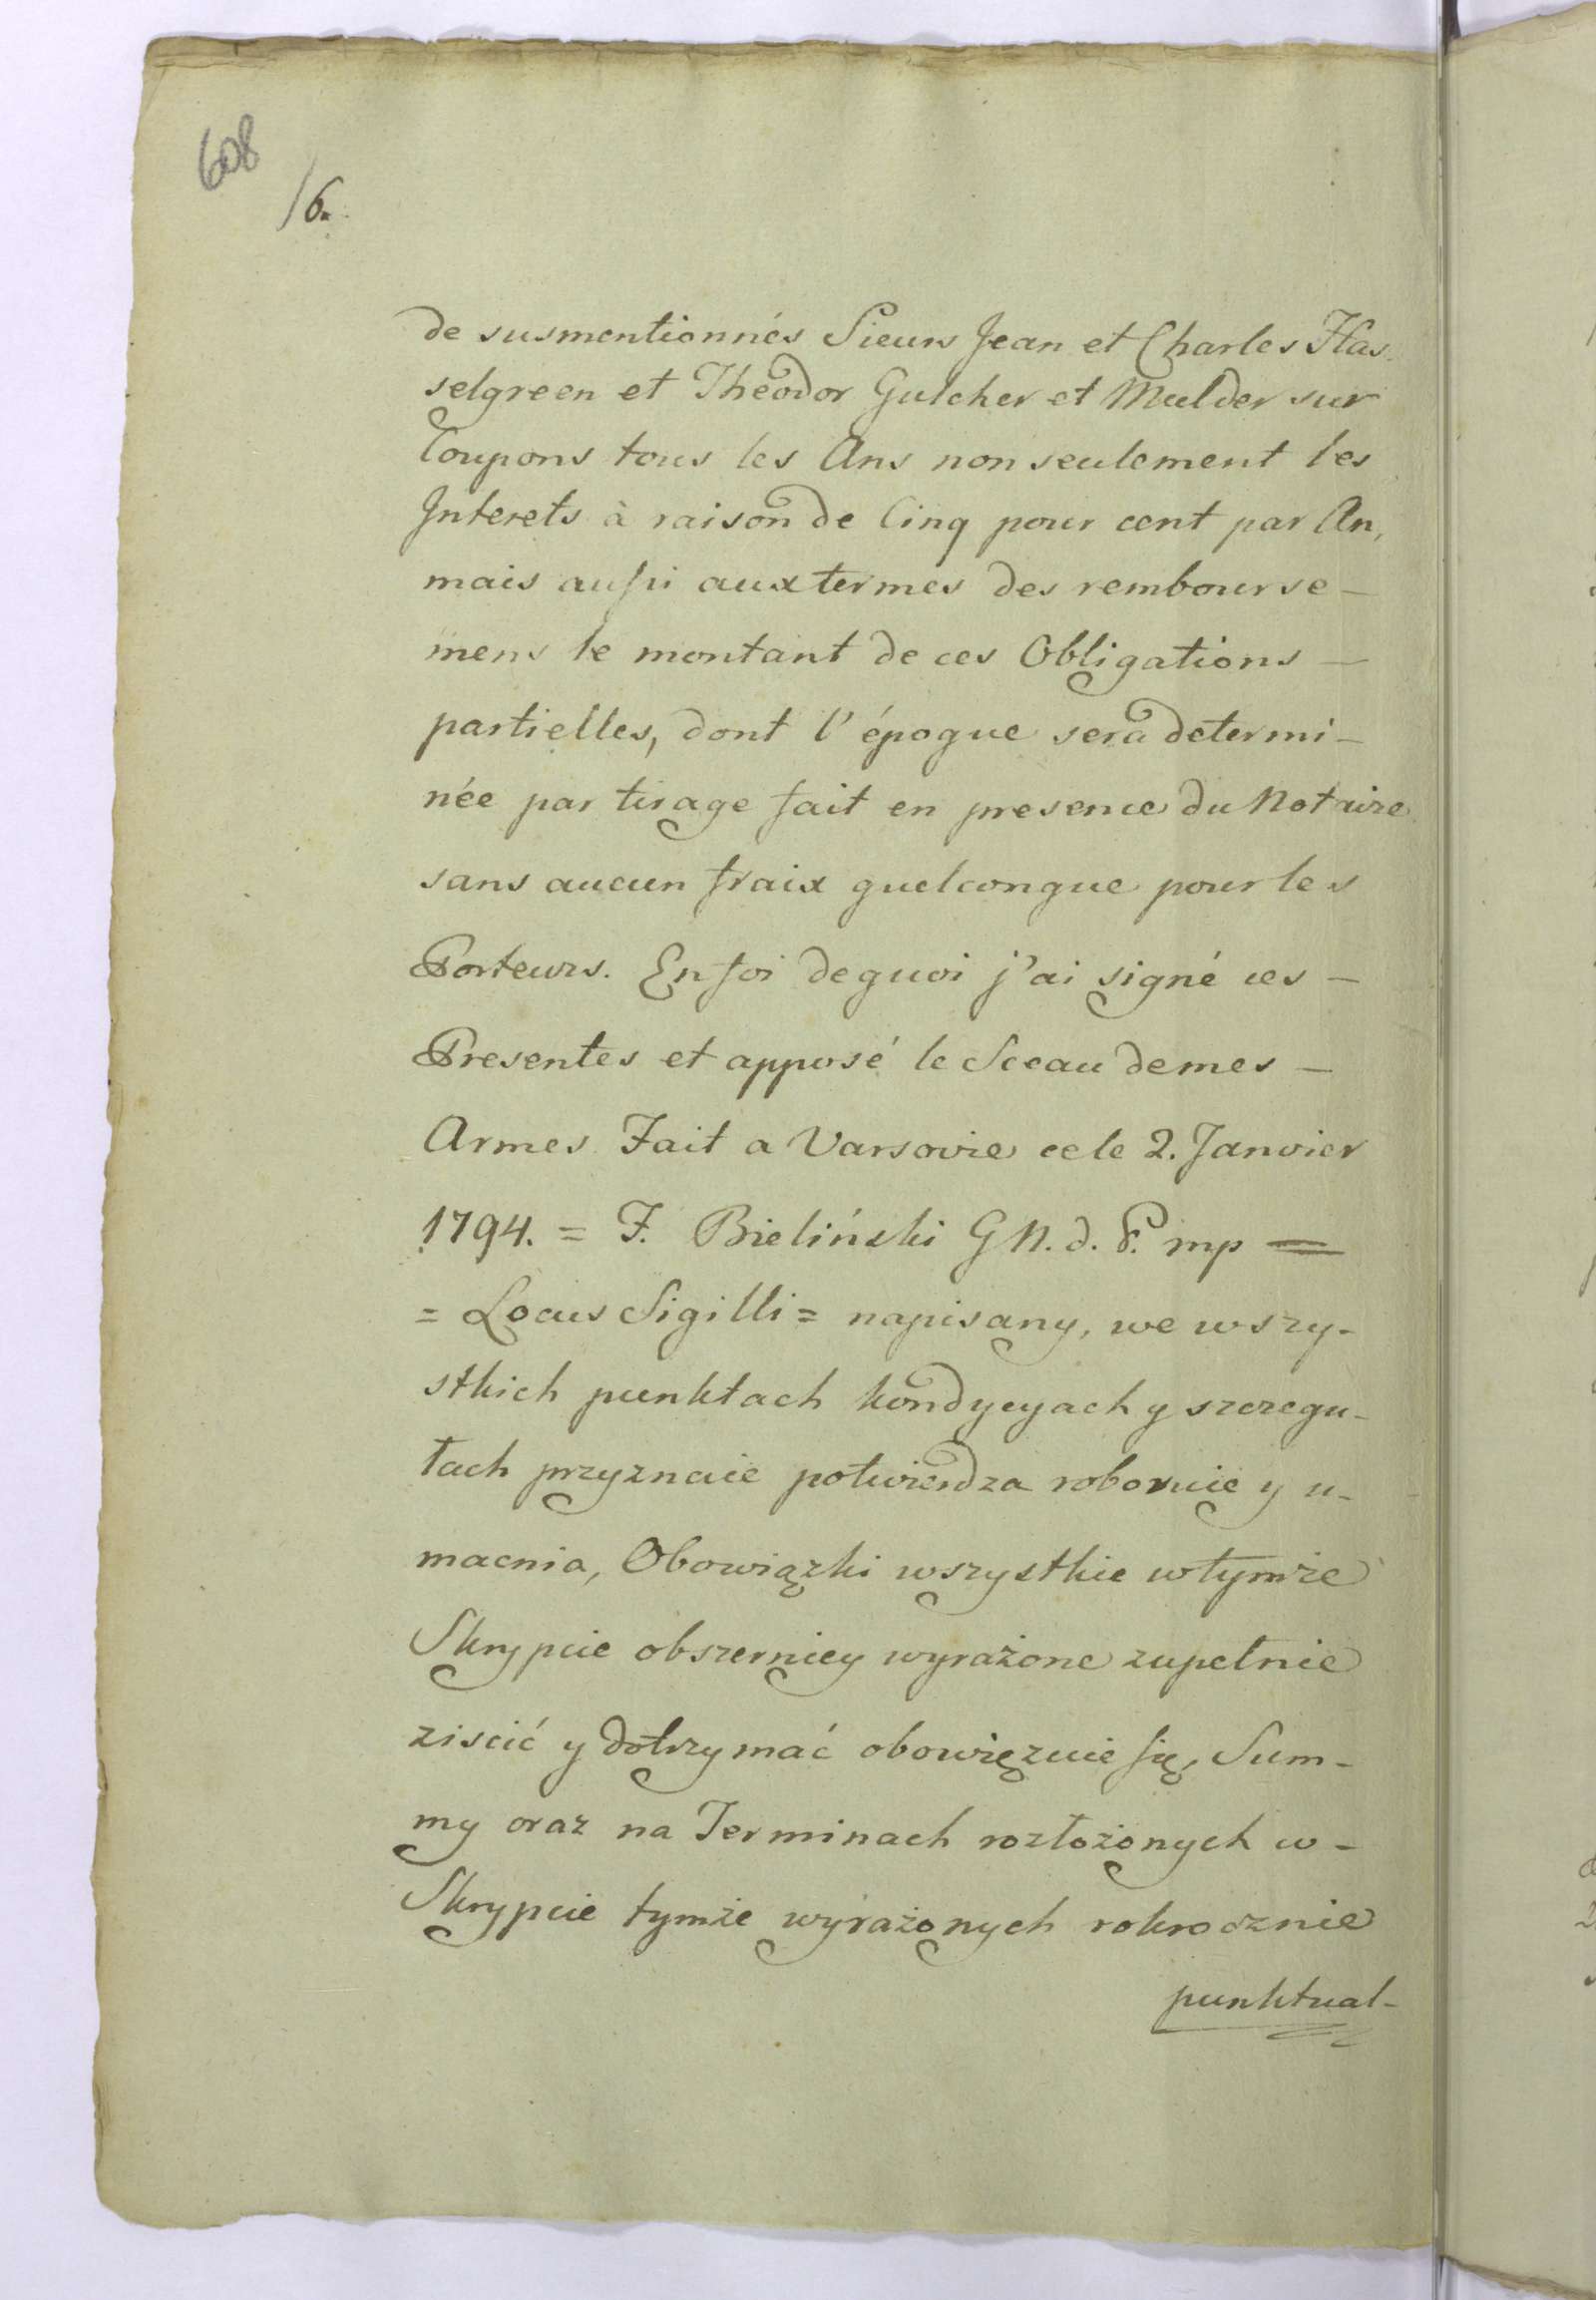 608
16.
de susmentionnés Sieurs Jean et Charles Has
selgreen et Théodor Gulcher et Mulder sur
Coupons tous les Ans non seulement les
Interets à raison de Cinq pour cent par An,
mais aussi aux termes des rembourse-
mens le montant de ces Obligations -
partielles, dont l'époque sera determi-
née par tirage fait en presence du Notaire
sans aucun fraix quelconque pour les
Porteurs. En foi de quoi j'ai signé ces -
Presentes et apposé le Sceau de mes -
Armes. Fait a Varsovie ce le 2. Janvier
1794. = F. Bieliński G N. d. P. mp =
= Locus Sigilli = napisany, we wszy-
stkich punktach kondycyach y szczegu-
łach przyznaie potwierdza roboruie y u-
macnia, Obowiązki wszystkie w tymże
Skrypcie obszerniey wyrażone zupełnie
ziscić y dotrzymać obowięzuie się, Sum-
my oraz na Terminach rozłożonych w -
Skrypcie tymże wyrażonych rokrocznie
punktual-